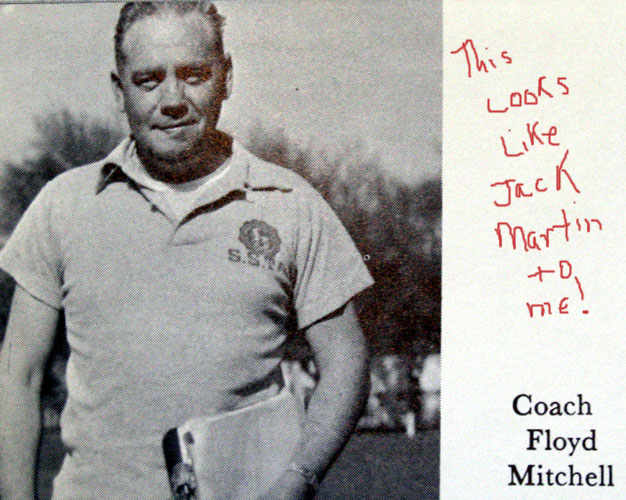 This
Looks
Like
Jack
Martin
to
me!
Coach
Floyd
Mitchell